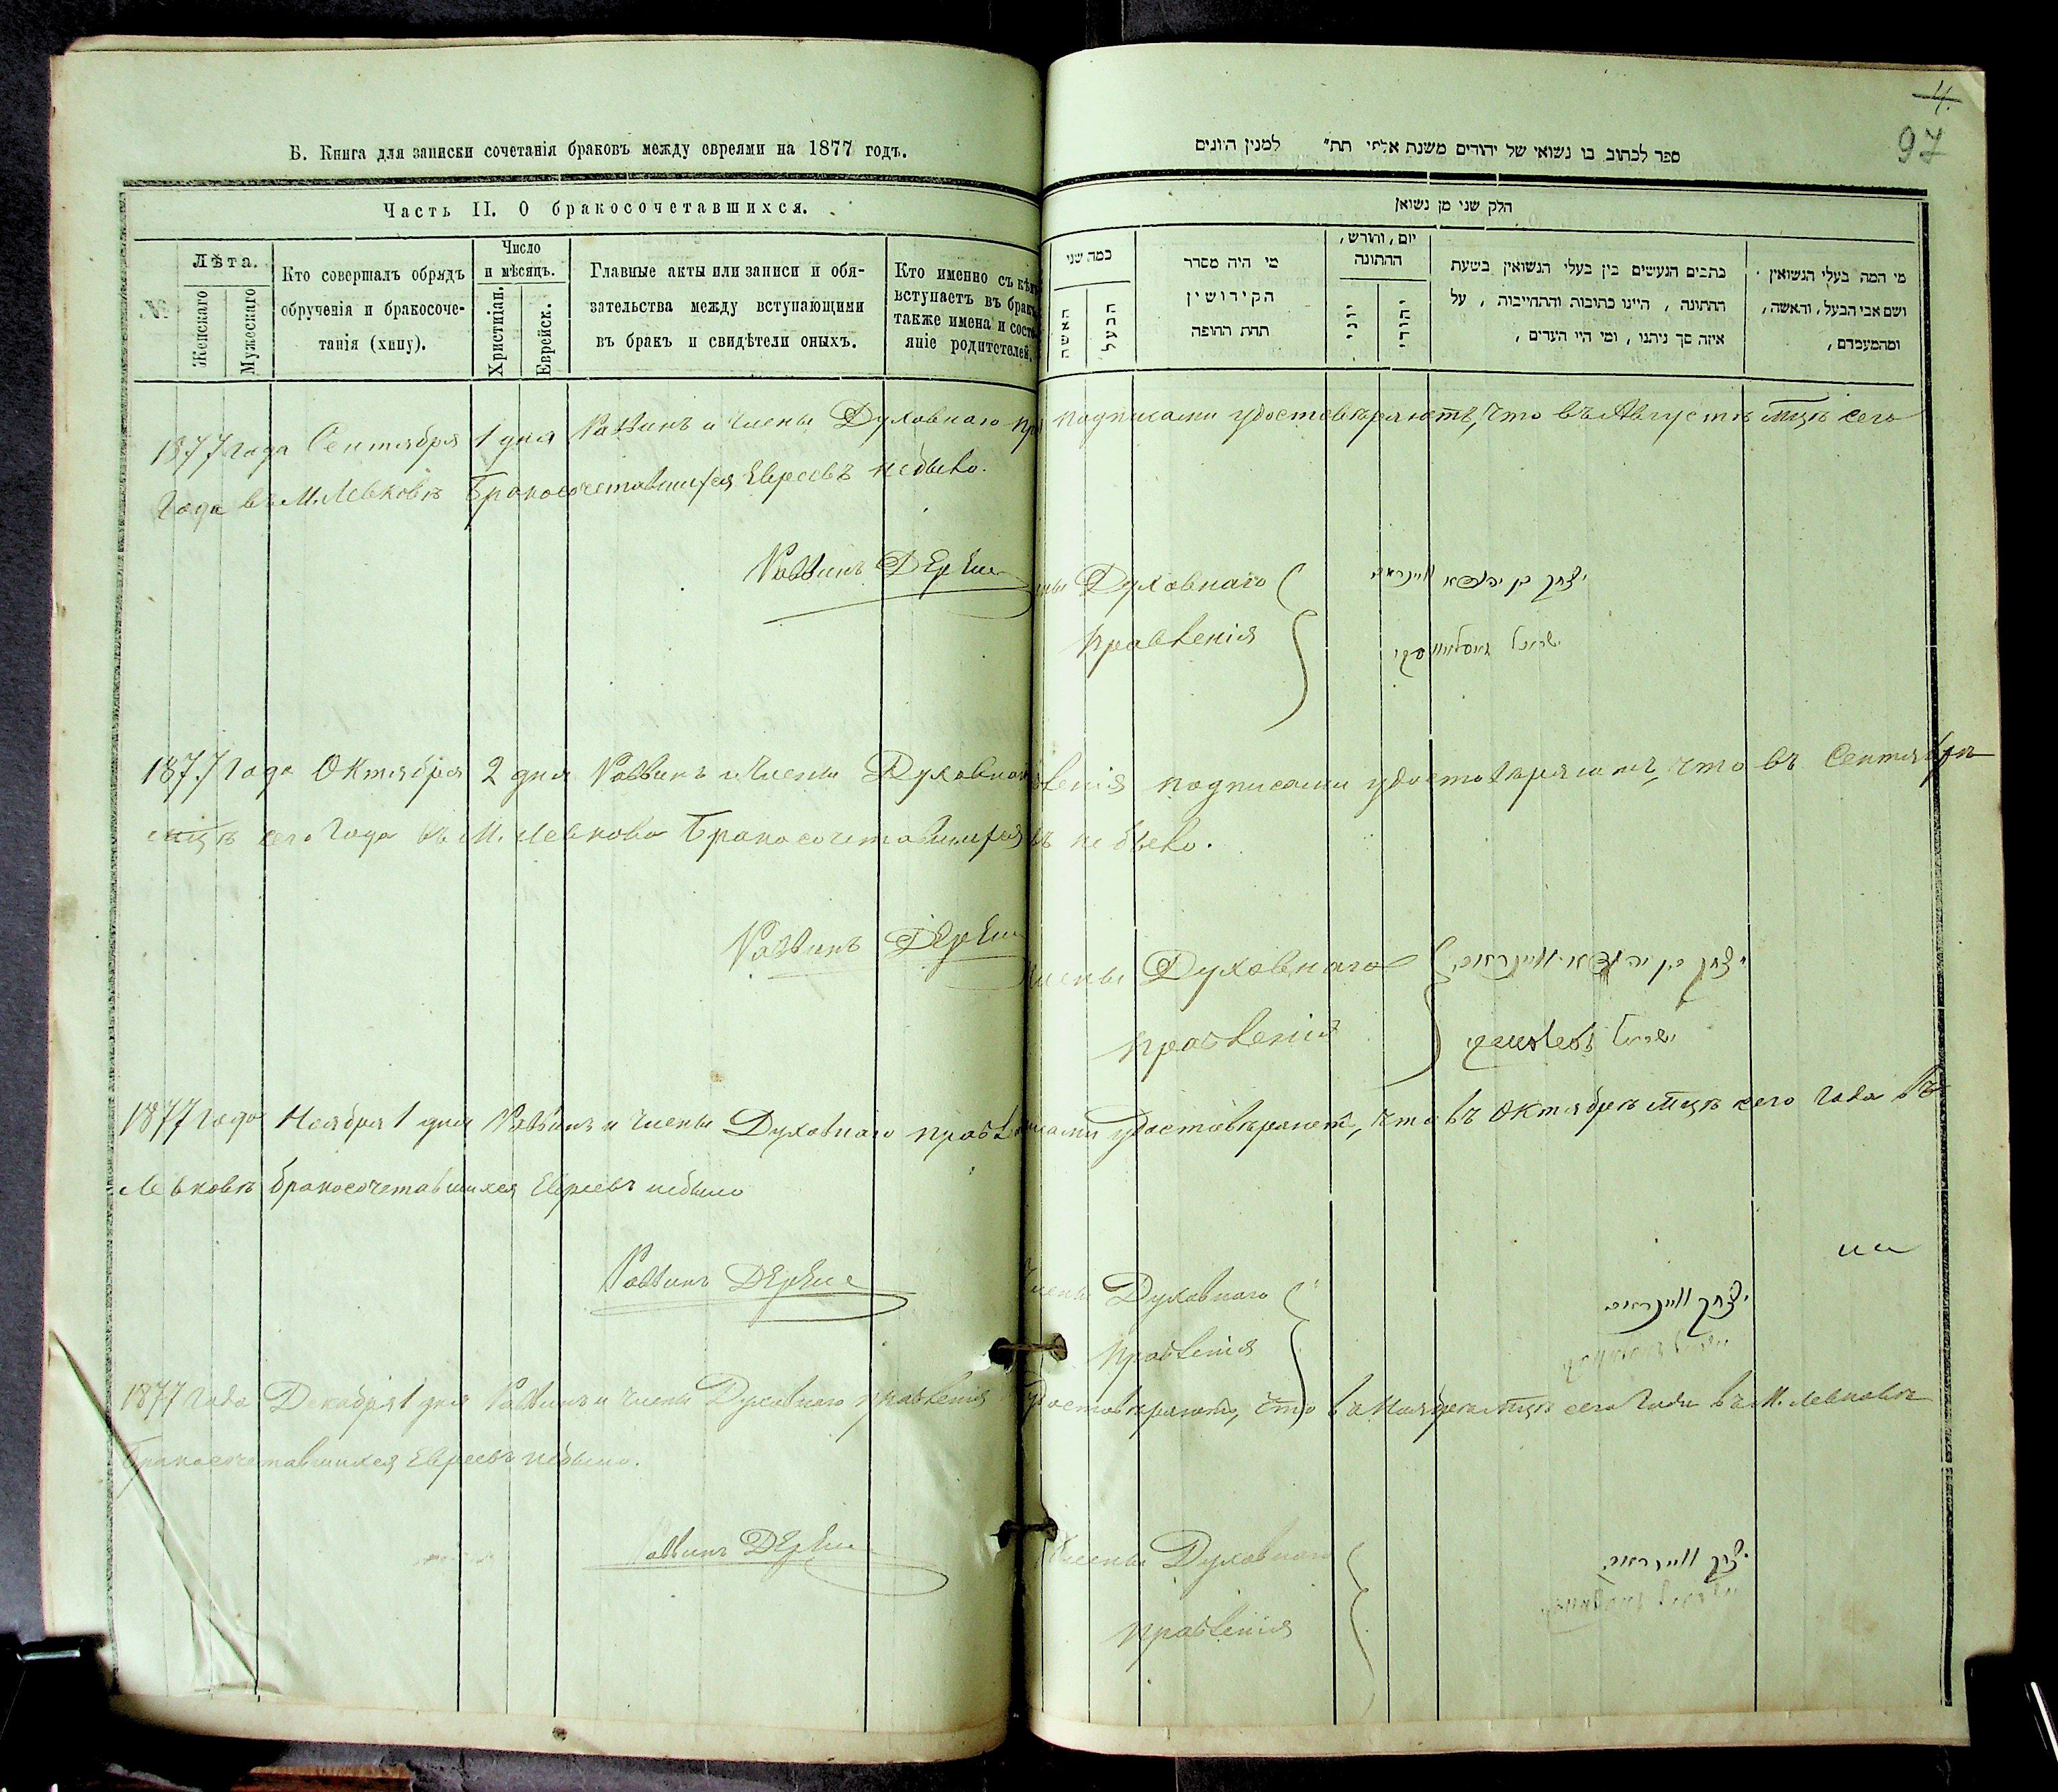 Б. Книга для записки сочетанія браковъ между евреями на 1877 годъ.
Часть II. О бракосочетавшихся.
№.
Лѣта.
Женскаго
Мужескаго
Кто совершалъ обрядъ
обрученія и бракосоче-
танія (хипу).
Число
и мѣсяцъ.
Христіан.
Еврейск.
Главные акты или записи и обя-
зательства между вступающими
въ бракъ и свидѣтели оныхъ.
Кто именно съ кѣмъ
вступаетъ въ бракъ
также имена и состо-
яніе родителей.
4.
97
ספר לכתוב בו נשואי של יהודים משנת אלפי תת״ למנין היונים
חלק שני מן נשואין
כמה שני
האשה
הבעל
מי היה מסדר
הקידושין
תחת החופה
יום, וחורש,
החתונה
יוני
יהודי
כתבים הנעשים בין בעלי הנשואין בשעת
החתונה, היינו כתובות והתחייבות, על
איזה סך ניתנו, ומי היו העדים,
מי המה בעלי הנשואין
ושם אבי הבעל, והאשה,
ומהמעמדם,
1877 года Сентября 1 дня Раввинъ и Члены Духовнаго Пра подписами удостовѣряютъ, что въ Августѣ мцѣ сего
Года въ М. Левковѣ Бракосочетавшихся Евреевъ небыло.
Раввинъ
Члены Духовнаго
Правленія
יצחק בן
ישראל
1877 года Октября 2 дня Раввинъ и Члены Духовнаго вленія подписами удостовѣряютъ, что въ Сентябрѣ
мцѣ сего Года въ М. Левкова Бракосочетавшихся въ не было.
Раввинъ
Члены Духовнаго
Правленія
יצחק בן
ישראל
1877 года Ноября 1 дня Раввинъ и Члены Духовнаго Правле исами удостовѣряютъ, что въ Октябрѣ мцѣ сего года въ
Левковѣ бракосочетавшихся Евреевъ небыло
Раввинъ
Члены Духовнаго
Правленія
יצחק
1877 года Декабря 1 дня Раввинъ и Члены Духовнаго Правленія удостовѣряютъ, что въ Ноябрѣ мцѣ сего Года въ М. Левковѣ
Бракосочетавшихся Евреевъ небыло.
Раввинъ
Члены Духовнаго
Правленія
יצחק